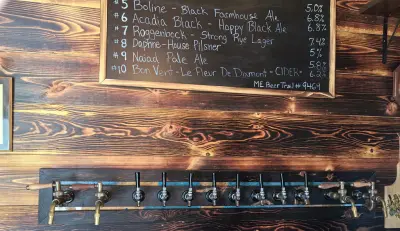 #5 Boline - Black Farmhouse Ale 5.0%
#6 Acadia Black - Hoppy Black Ale 6.8%
#7 Roggenbock - Strong Rye Lager 7.4%
#8 Daphne - House Pilsner 5%
#9 Naiad Pale Ale 5.8%
#10 Bon Vivant - Le Fleur De Diamont - CIDER - 6.2%
ME Beer Trail # 9469